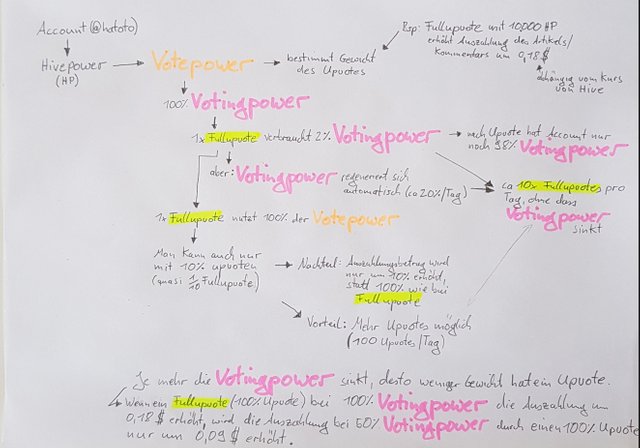 Account (@hatoto)
Hivepower
(HP)
Votepower
bestimmt Gewicht
des Upvotes
Bsp: Fullupvote mit 10.000 HP
erhöht Auszahlung des Artikels/
Kommentars um 0,18$
abhängig vom Kurs
von Hive
100% Votingpower
1x Fullupvote verbraucht 2% Votingpower
nach Upvote hat Account nur
noch 98% Votingpower
aber: Votingpower regeneriert sich
automatisch (ca 20%/Tag)
ca 10x Fullupvotes pro
Tag, ohne dass
Votingpower
sinkt
1x Fullupvote nutzt 100% der Votepower
Man kann auch nur
mit 10% upvoten
(quasi 1/10 Fullupvote)
Nachteil: Auszahlungsbetrag wird
nur um 10% erhöht,
statt 100% wie bei
Fullupvote
Vorteil: Mehr Upvotes möglich
(100 Upvotes/Tag)
Je mehr die Votingpower sinkt, desto weniger Gewicht hat ein Upvote.
Wenn ein Fullupvote (100% Upvote) bei 100% Votingpower die Auszahlung um
0,18$ erhöht, wird die Auszahlung bei 50% Votingpower durch einen 100% Upvote
nur um 0,09$ erhöht.